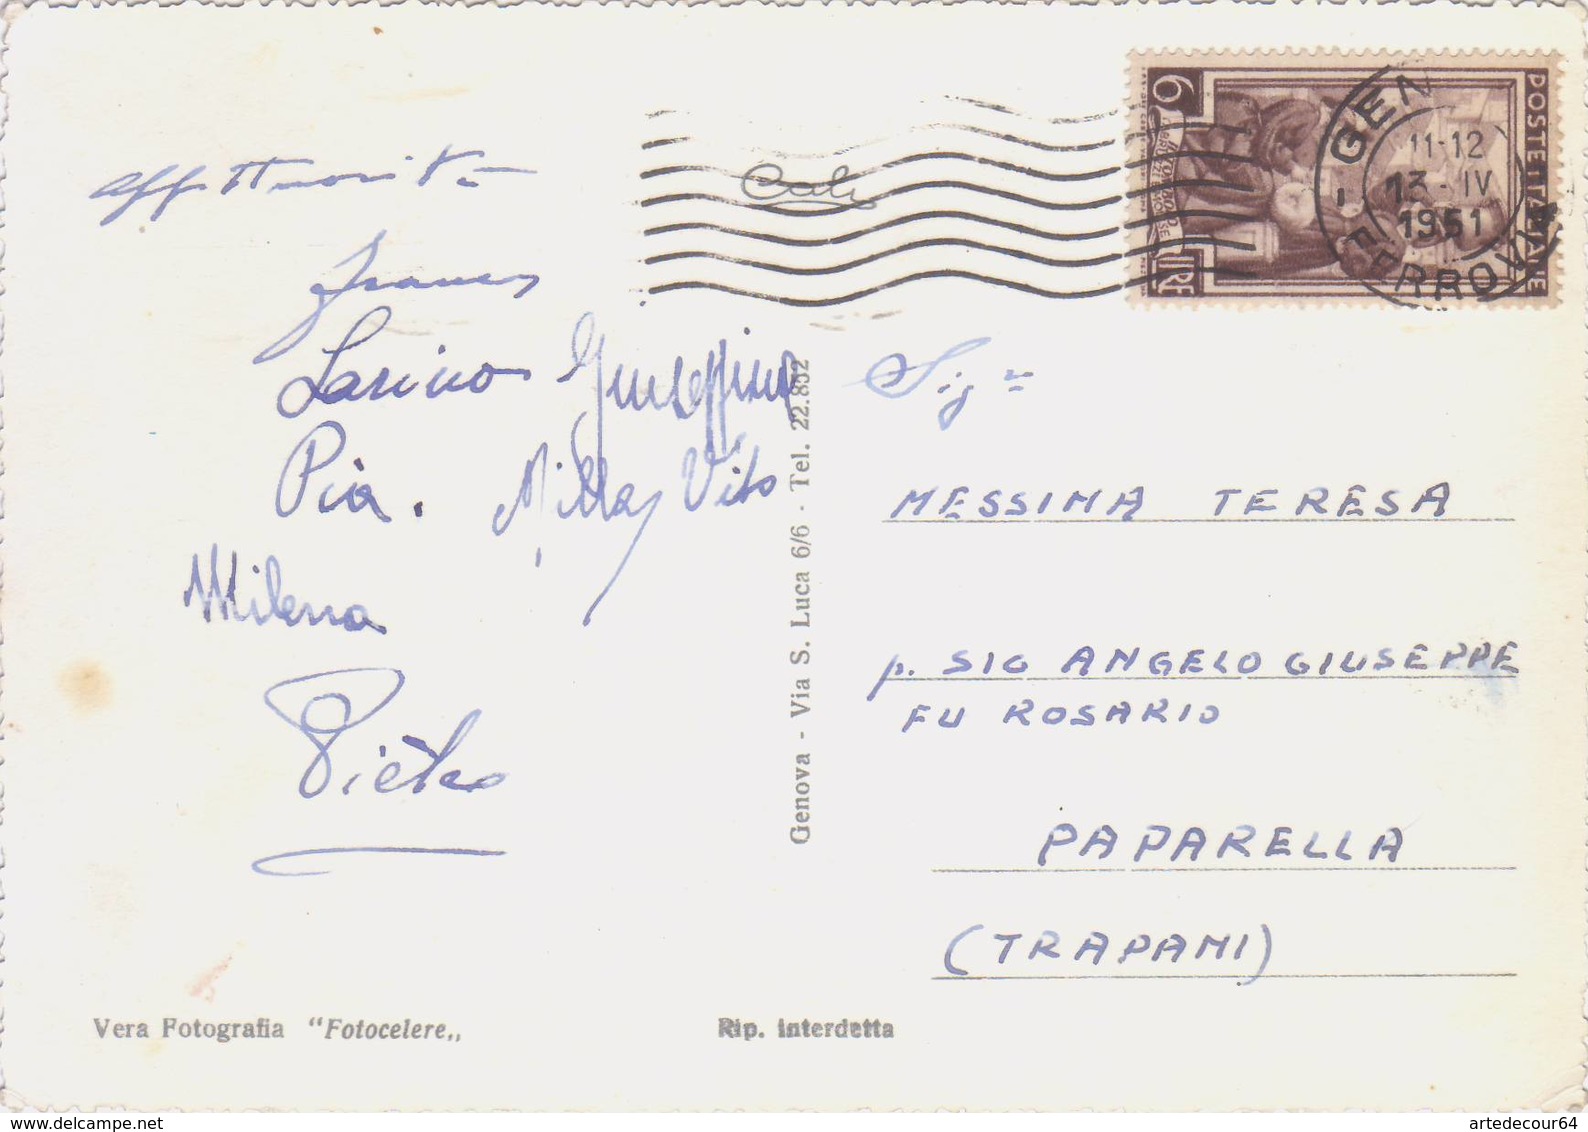 affettuosità
Franco
Larino Giuseppina
Pia. Milla, Vito
Milena
Pietro
6
LIRE
POSTE ITALIANE
GEN
11-12
13-IV
1951
FERROVIA
Sig.na
MESSINA TERESA
p. SIG ANGELO GIUSEPPE
FU ROSARIO
PAPARELLA
(TRAPANI)
Genova - Via S. Luca 6/6 - Tel. 22.852
Vera Fotografia "Fotocelere„
Rip. interdetta
www.delcampe.net
artedecour64